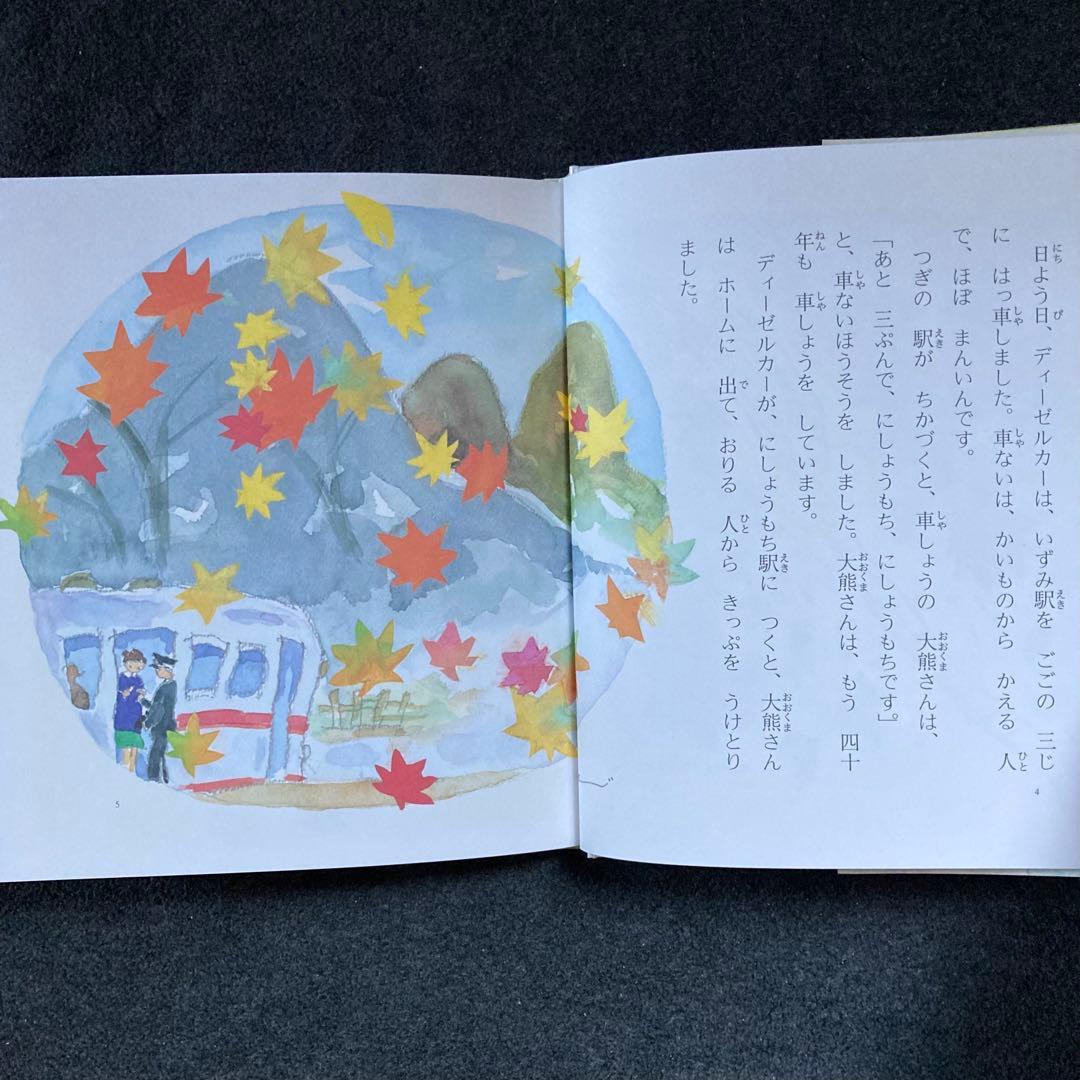 日よう日、ディーゼルカーは、いずみ駅を ごごの 三じ
に はっ車しました。車ないは、かいものから かえる 人
で、ほぼ まんいんです。
つぎの 駅が ちかづくと、車しょうの 大熊さんは、
「あと 三ぷんで、にしょうもち、にしょうもちです。」
と、車ないほうそうを しました。大熊さんは、もう 四十
年も 車しょうを しています。
ディーゼルカーが、にしょうもち駅に つくと、大熊さん
は ホームに 出て、おりる 人から きっぷを うけとり
ました。
4
5